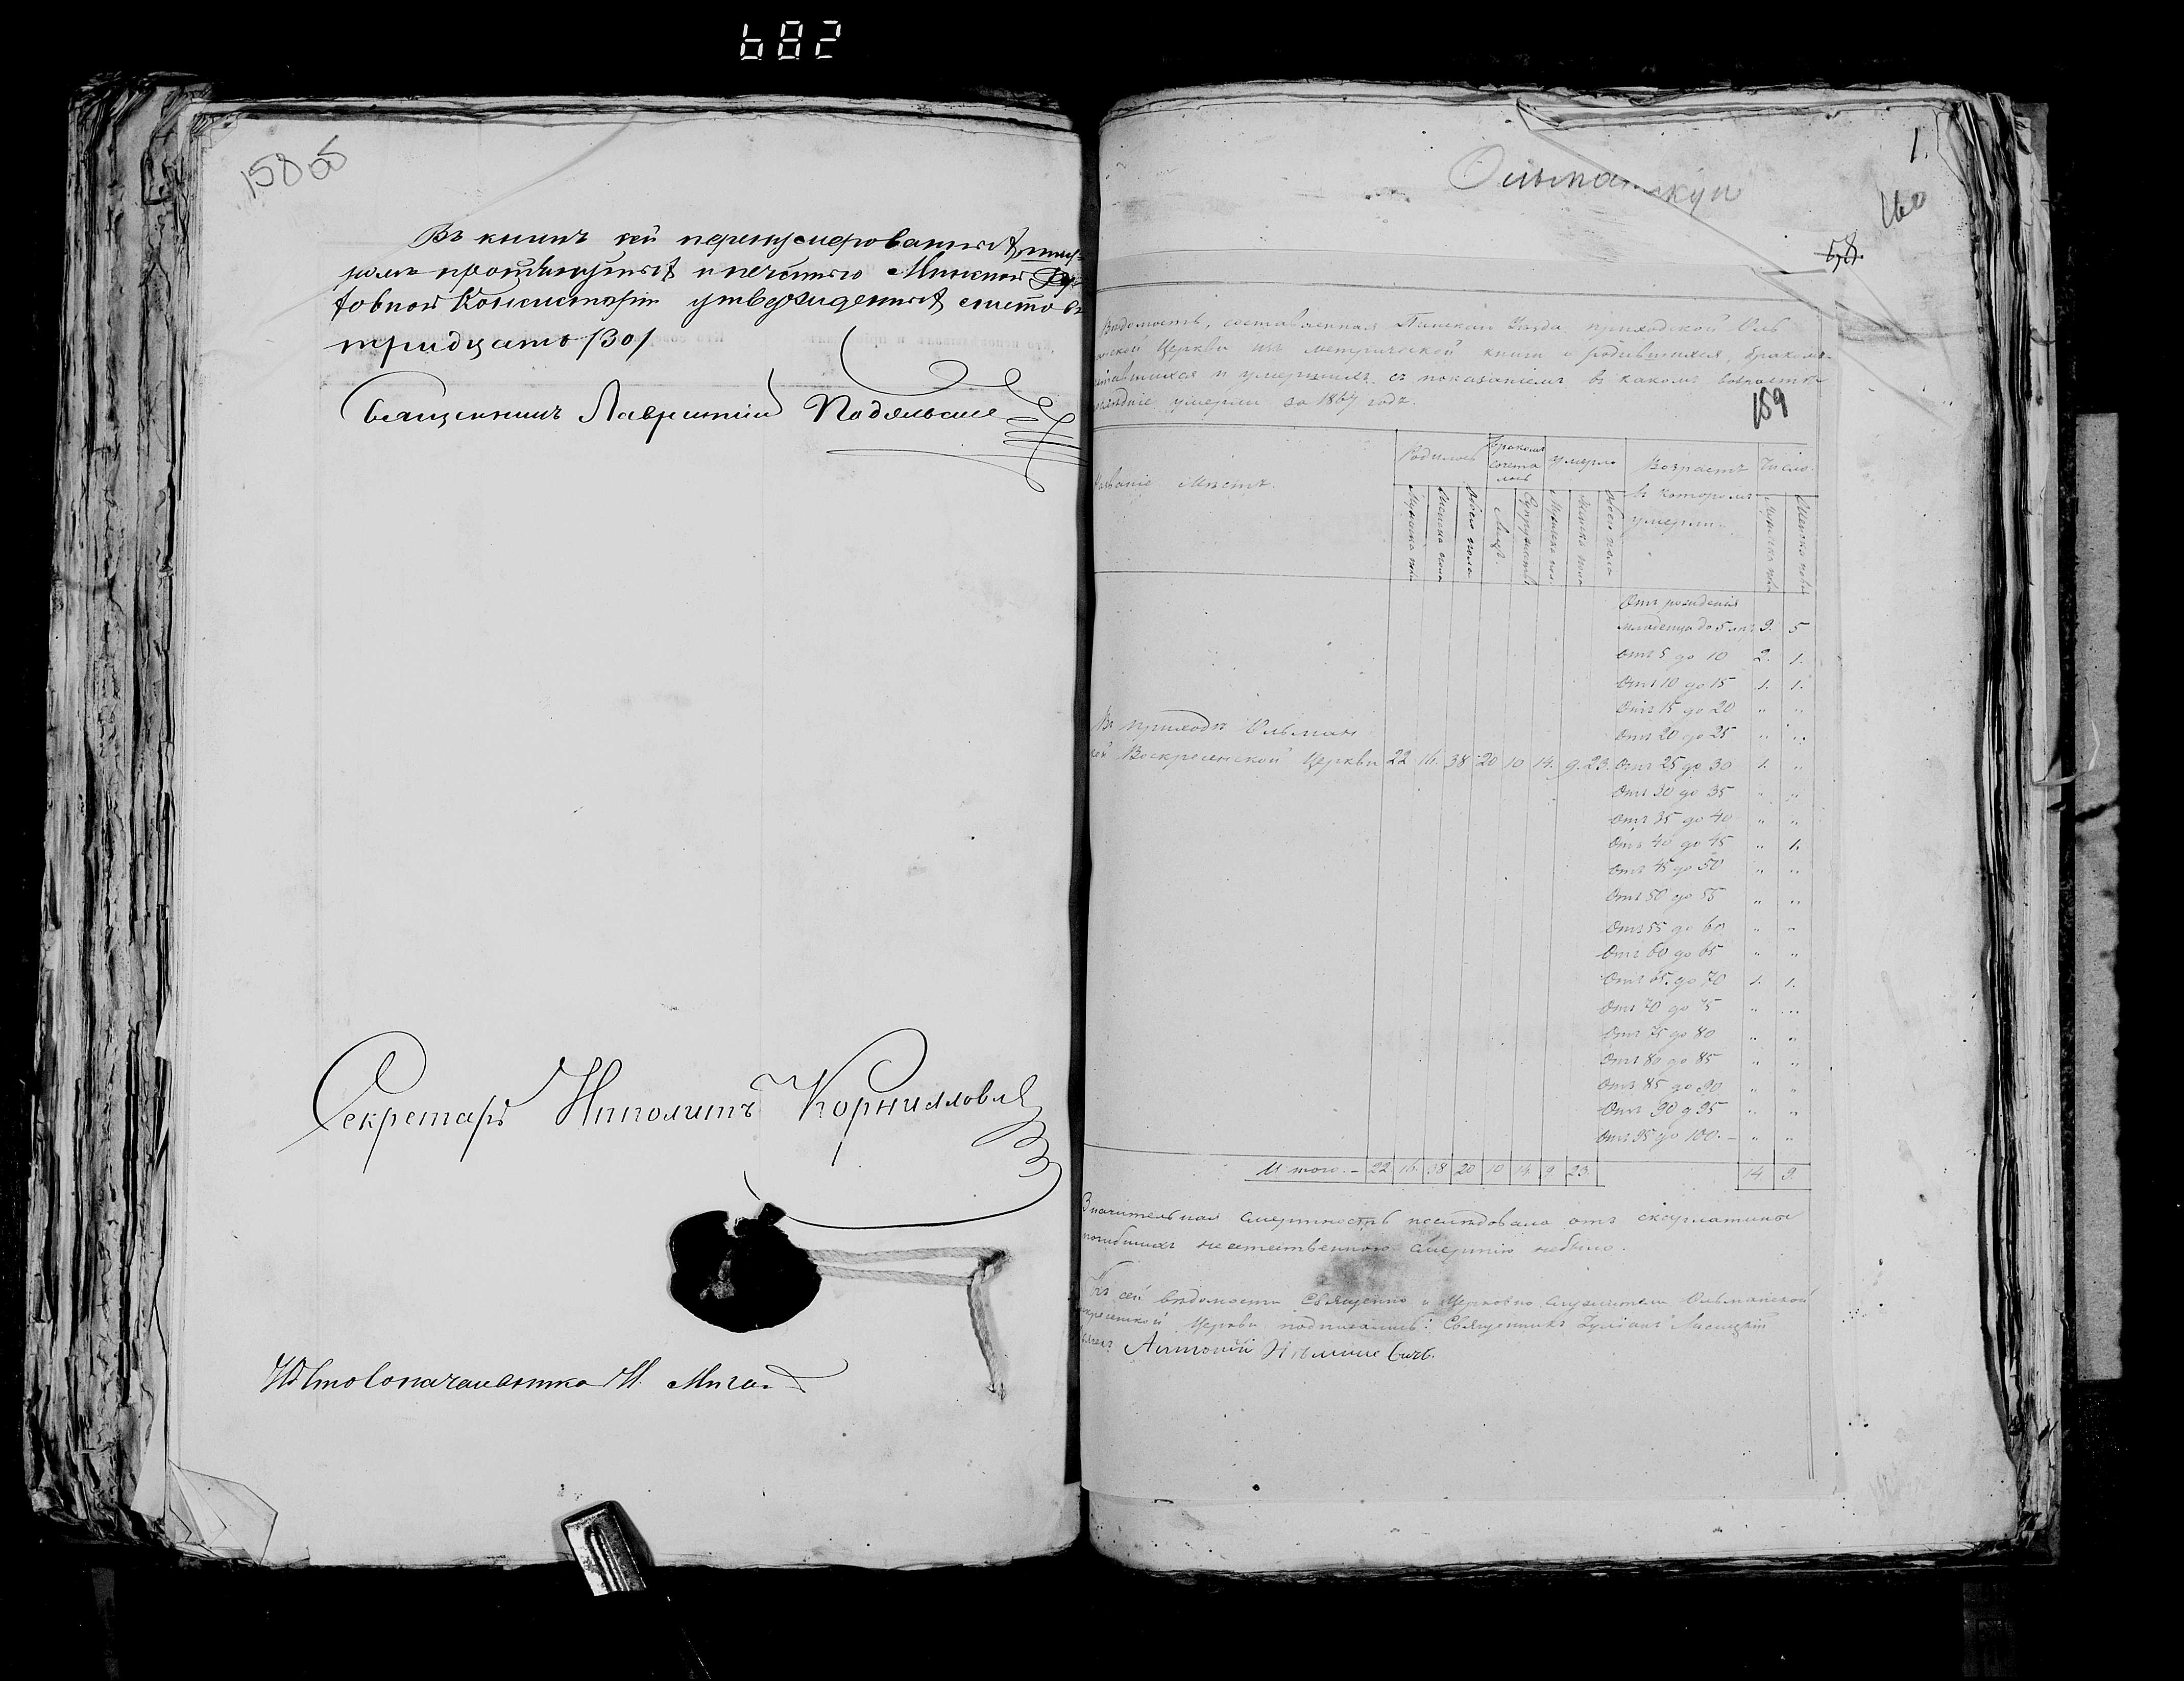 682
158 об
Въ книгѣ сей перенумерованныхъ, шну-
ромъ протянутыхъ и печатью Минской Ду-
ховной Консисторіи утвержденныхъ листовъ
тридцать /30/
Священникъ Лаврентій
Секретарь Иполитъ Корниловъ
Столоначальника И.
1.
160
58.
Вѣдомость, составленная Пинскаго Уѣзда, приходской Оль
анской Церкви изъ метрической книги о родившихся, бракомъ
ставшихся и умершихъ съ показаніемъ въ какомъ возрастѣ
послѣдніе умерли за 1867 годъ.
159
Названіе Мѣстъ.
Родилось
Бракомъ сочета лось
Умерло
Возрастъ въ которомъ умерли.
Число.
Мужска пола
Женска пола
Обоего пола
Лицъ.
Супружествъ
Мужска пол.
Женска пола
Обоего пола
Мужска пола
Женска пола
Отъ рожденія
младенца до 5 лѣтъ 9. 5
Отъ 5 до 10 2. 1.
Отъ 10 до 15 1. 1.
Отъ 15 до 20 " "
Отъ 20 до 25 " "
Въ приходѣ Ольман
ской Воскресенской Церкви 22 16. 38 20 10 14. 9. 23. Отъ 25 до 30 1. "
Отъ 30 до 35 " "
Отъ 35 до 40 " "
Отъ 40 до 45 " 1.
Отъ 45 до 50 " "
Отъ 50 до 55 " "
Отъ 55 до 60 " "
Отъ 60 до 65 " "
Отъ 65 до 70 1. 1.
Отъ 70 до 75 " "
Отъ 75 до 80 " "
Отъ 80 до 85 " "
Отъ 85 до 90 " "
Отъ 90 д 95 " "
Отъ 95 до 100. – " "
И того. – 22 16. 38 20 10 14 9 23 14 9.
Значительная смертность послѣдовала отъ скарлатины
погибшихъ неестественною смертію небыло.
Къ сей вѣдомости Священно и Церковно служители Ольманской
Воскресенской Церкви подписались: Священникъ Іуліанъ Лисицкій
Антоній